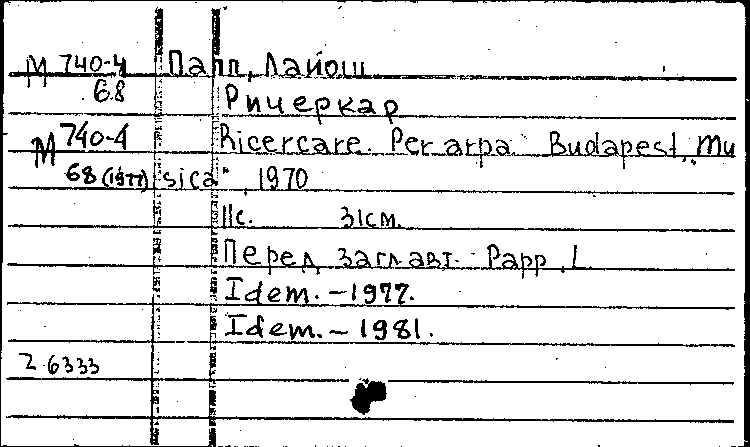 М 740-4 Папп, Лайош
68 Ричеркар
М 740-4 Ricercare. Per arpa. Budapest, Mu
68 (1977) sica", 1970
11с. 31см.
Перед загл. авт. Papp, L
Idem. - 1977.
Idem. - 1981.
2 6333